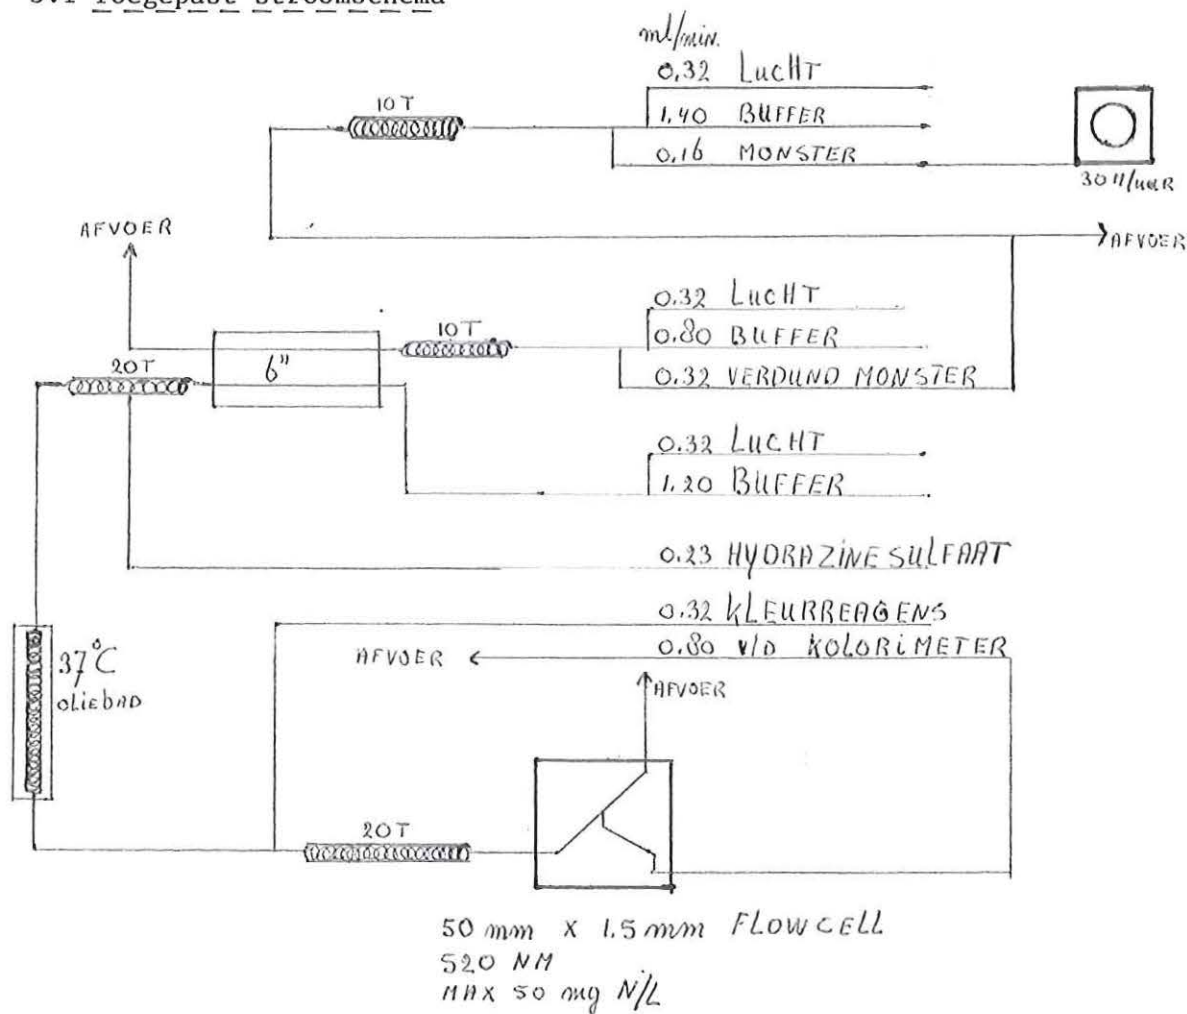 3.1 Toegepast stroomschema
ml/min.
0,32 LUCHT
10T
1,40 BUFFER
0,16 MONSTER
AFVOER
AFVOER
0.32 LUCHT
10T
0.80 BUFFER
6"
20T
0.32 VERDUND MONSTER
0.32 LUCHT
1.20 BUFFER
0.23 HYDRAZINE SULFAAT
0.32 KLEURREAGENS
0.80 v/D KOLORIMETER
37°C
AFVOER
oliebad
AFVOER
20T
50 mm X 1.5 mm FLOWCELL
520 NM
MAX 50 mg N/L